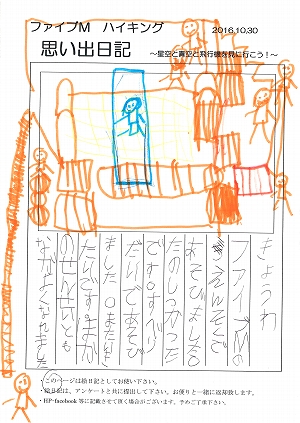 ファイブM　ハイキング
2016.10.30
思い出日記
～星空と青空と飛行機を見に行こう！～
きょうわ
ファイブMの
たのしかった
です。すべり
だいであそび
ました。また
たいです。
のせんせいとも
なかよくなれました
・このページは絵日記としてお使い下さい。
・絵日記は、アンケートと共に提出して下さい。お便りと一緒に返却致します。
・HP・facebook 等に記載させて頂く場合がございます。予めご了承下さい。